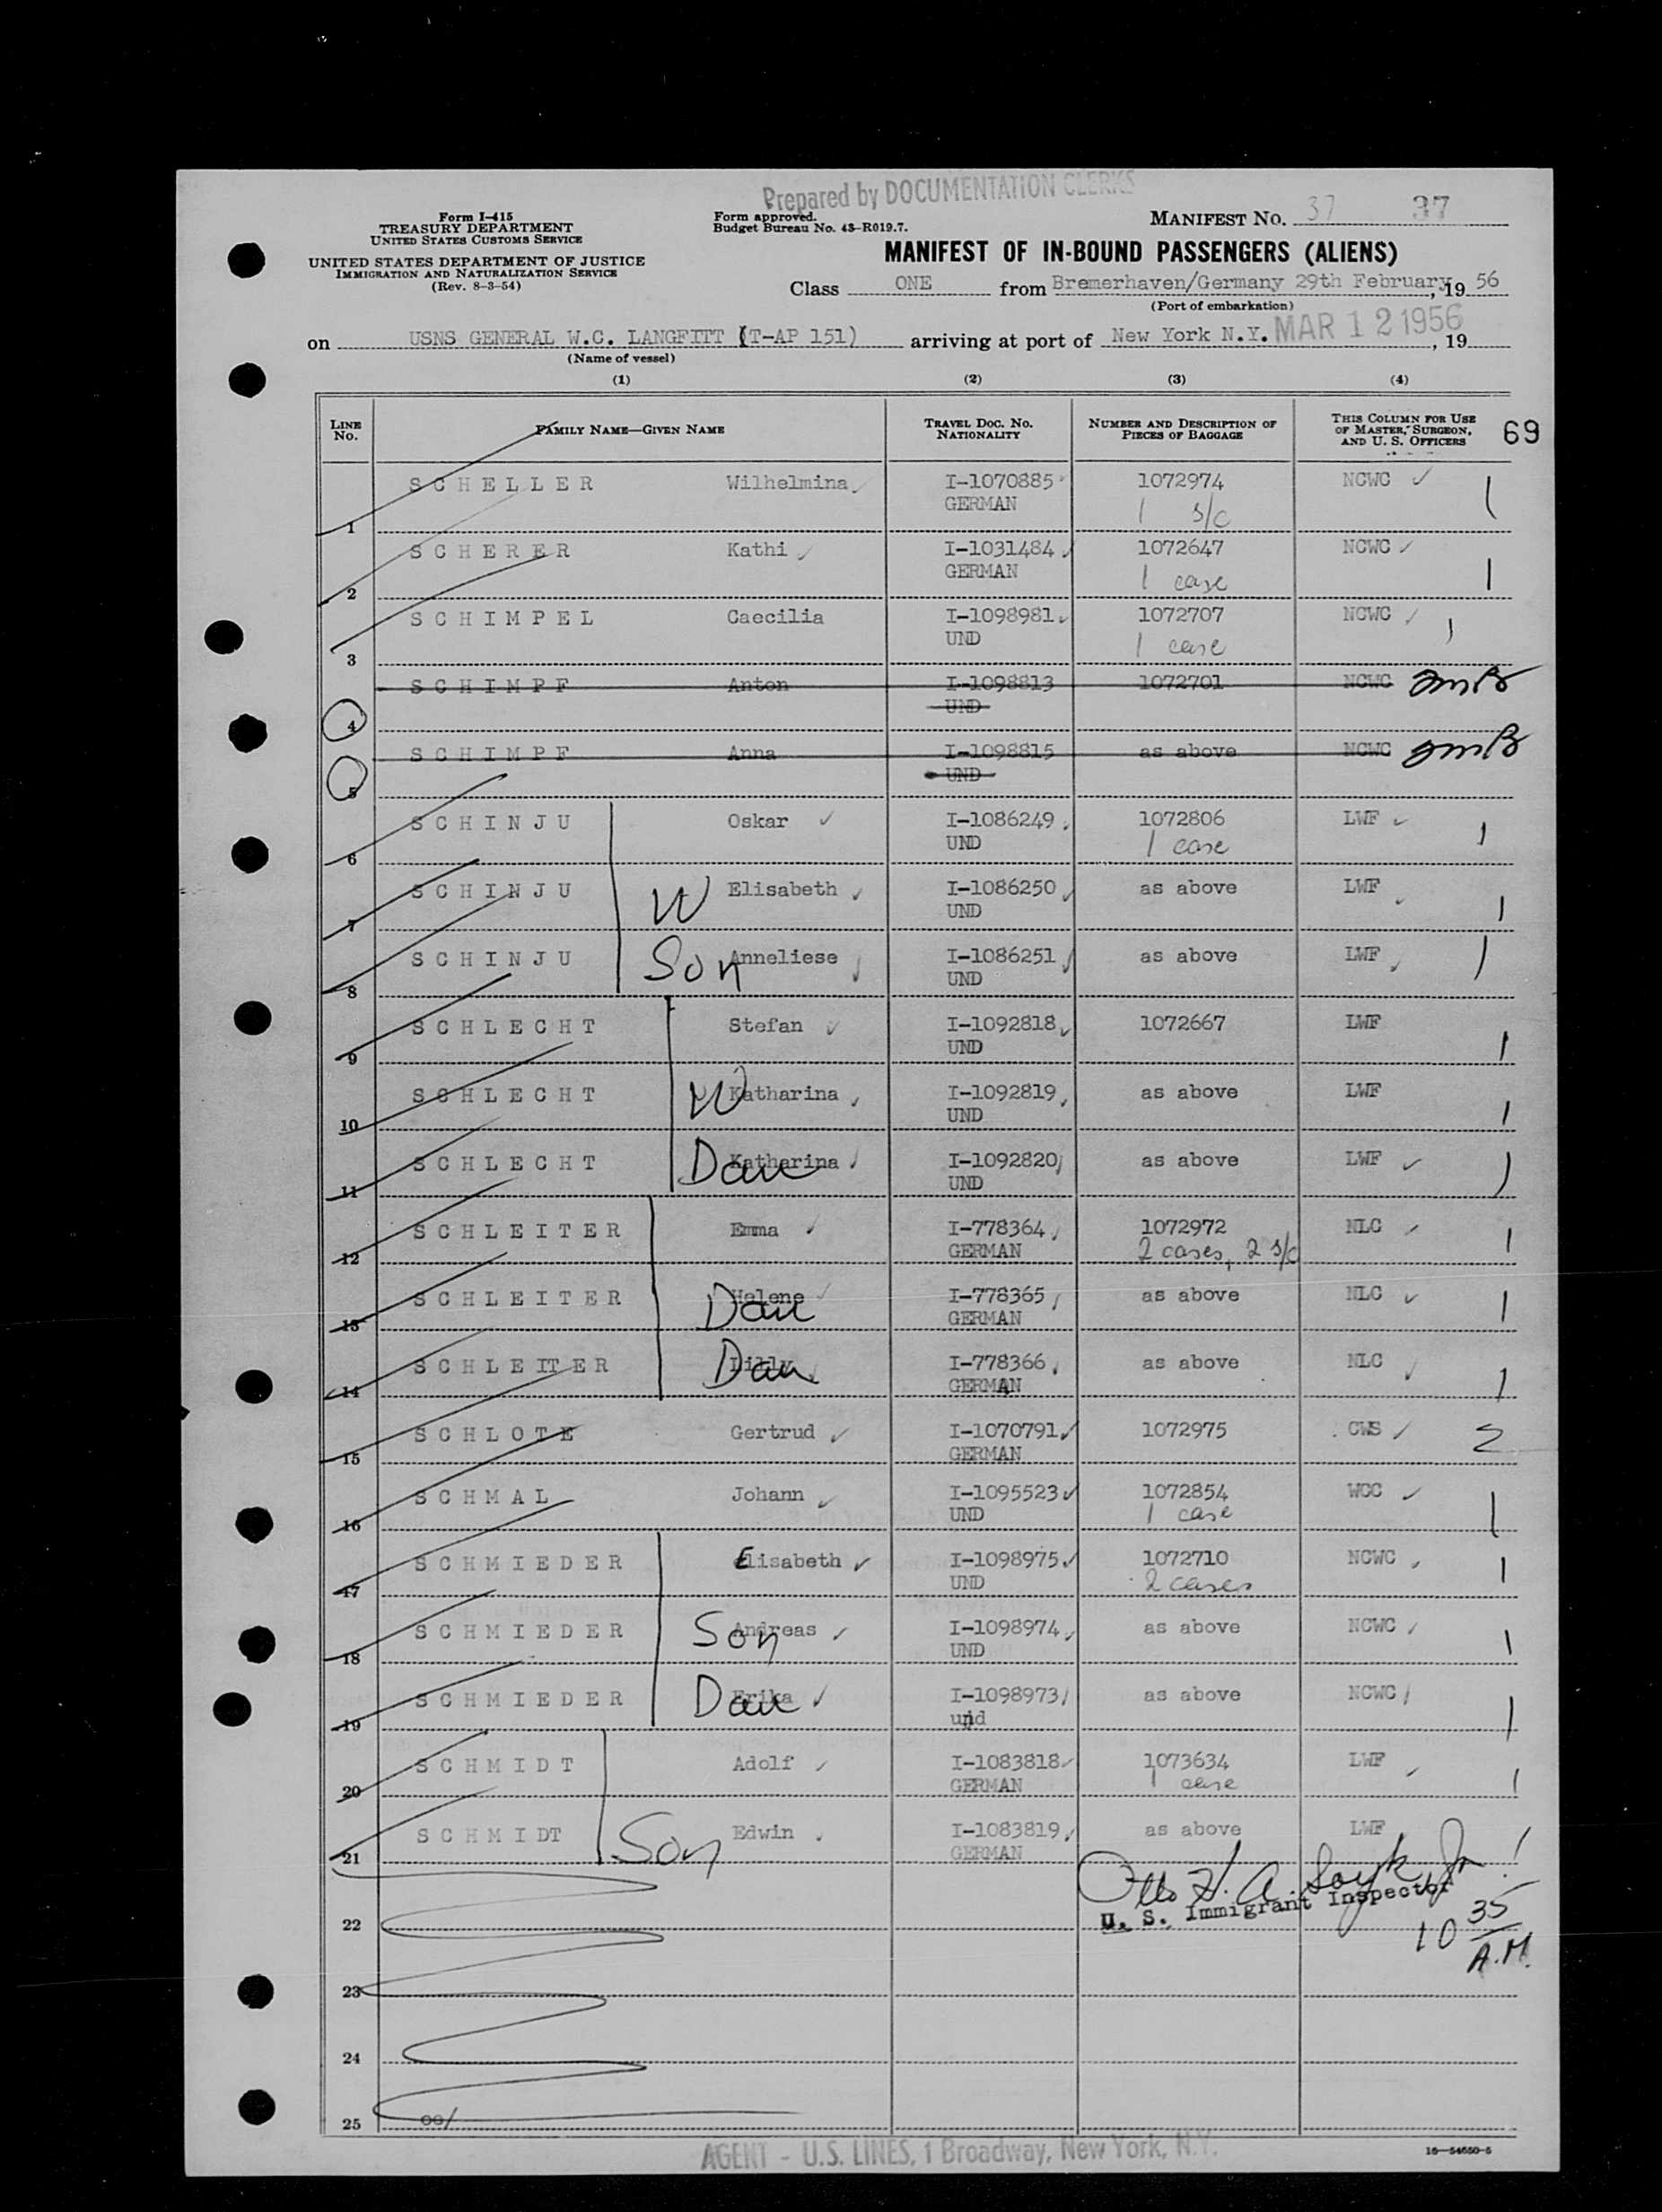 Prepared by DOCUMENTATION CLERKS
Form I-415
TREASURY DEPARTMENT
UNITED STATES CUSTOMS SERVICE
UNITED STATES DEPARTMENT OF JUSTICE
IMMIGRATION AND NATURALIZATION SERVICE
(Rev. 8-3-54)
Form approved.
Budget Bureau No. 43-R019.7.
MANIFEST NO. 37 37
MANIFEST OF IN-BOUND PASSENGERS (ALIENS)
Class ONE from Bremerhaven/Germany 29th February, 19 56
(Port of embarkation)
on USNS GENERAL W.C. LANGFITT (T-AP 151) arriving at port of New York N.Y. MAR 12 1956, 19
(Name of vessel)
(1) (2) (3) (4)
LINE No. FAMILY NAME—GIVEN NAME TRAVEL DOC. NO. NATIONALITY NUMBER AND DESCRIPTION OF PIECES OF BAGGAGE THIS COLUMN FOR USE OF MASTER, SURGEON, AND U. S. OFFICERS 69
1 SCHELLER Wilhelmina I-1070885 GERMAN 1072974 1 s/c NCWC 1
2 SCHERER Kathi I-1031484 GERMAN 1072647 1 case NCWC 1
3 SCHIMPEL Caecilia I-1098981 UND 1072707 1 case NCWC 1
4 SCHIMPF Anton I-1098813 UND 1072701 NCWC
5 SCHIMPF Anna I-1098815 UND as above NCWC
6 SCHINJU Oskar I-1086249 UND 1072806 1 case LWF 1
7 SCHINJU W Elisabeth I-1086250 UND as above LWF 1
8 SCHINJU Son Anneliese I-1086251 UND as above LWF 1
9 SCHLECHT Stefan I-1092818 UND 1072667 LWF 1
10 SCHLECHT W Katharina I-1092819 UND as above LWF 1
11 SCHLECHT Dau Katharina I-1092820 UND as above LWF 1
12 SCHLEITER Emma I-778364 GERMAN 1072972 2 cases, 2 s/c NLC 1
13 SCHLEITER Dau Helene I-778365 GERMAN as above NLC 1
14 SCHLEITER Dau Lilly I-778366 GERMAN as above NLC 1
15 SCHLOTE Gertrud I-1070791 GERMAN 1072975 CWS 2
16 SCHMAL Johann I-1095523 UND 1072854 1 case WCC 1
17 SCHMIEDER Elisabeth I-1098975 UND 1072710 2 cases NCWC 1
18 SCHMIEDER Son Andreas I-1098974 UND as above NCWC 1
19 SCHMIEDER Dau Erika I-1098973 und as above NCWC 1
20 SCHMIDT Adolf I-1083818 GERMAN 1073634 1 case LWF 1
21 SCHMIDT Son Edwin I-1083819 GERMAN as above LWF 1
U. S. Immigrant Inspector
22
10 35 A.M.
23
24
25 oo/
AGENT - U.S. LINES, 1 Broadway, New York, N.Y.
16—54650-5